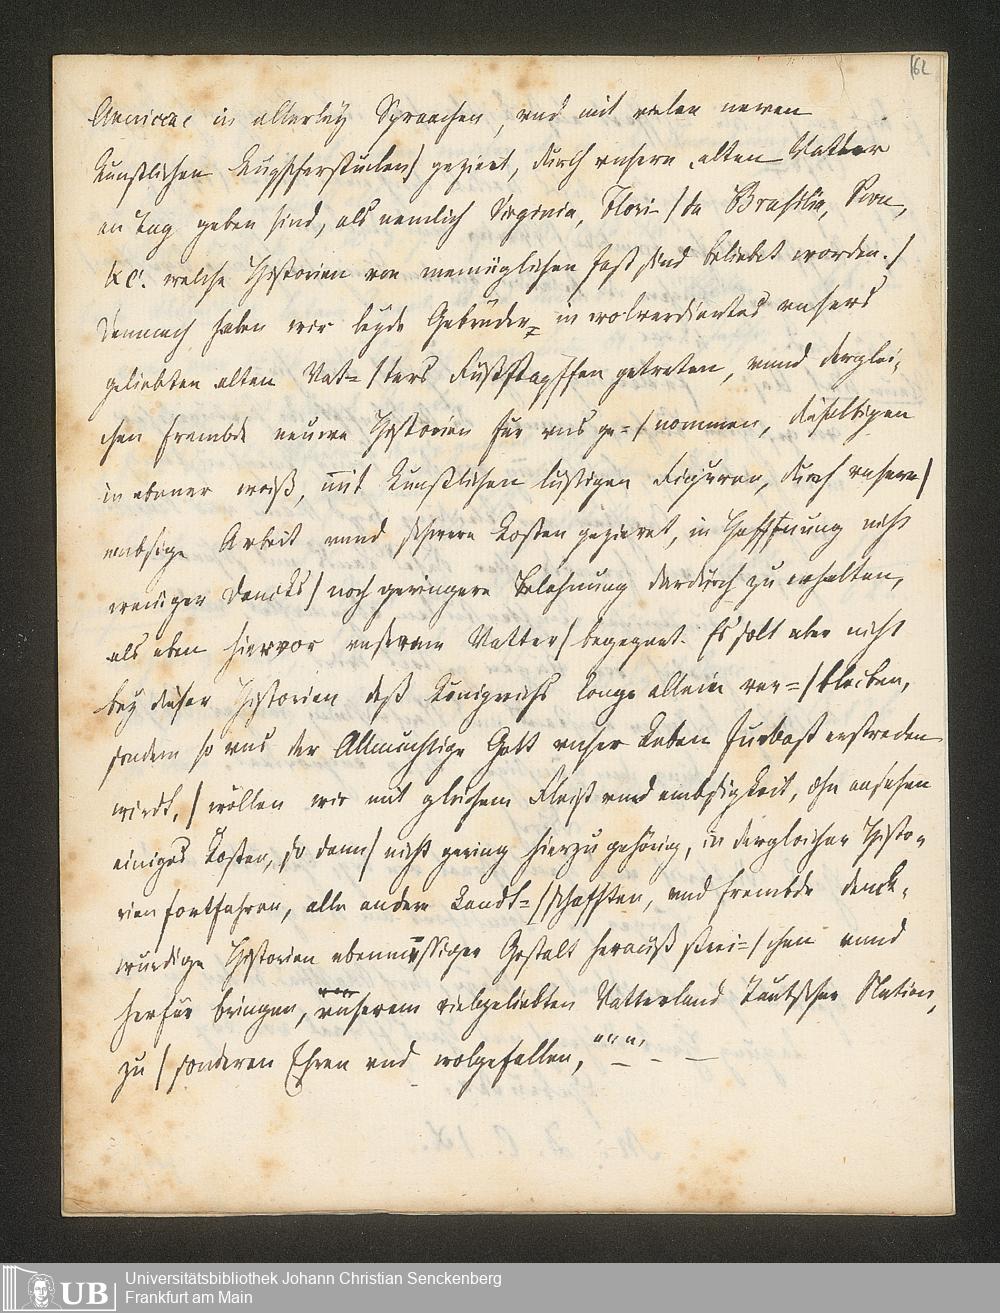 162
Americae in allerley Spraachen, und mit vielen newen
Kunstlichen Kupfferstucken / geziert, durch unsern alten Vatter
an tag geben sind, als nemlich Virginia, Flori- / da Brasilia, Peru,
&c. welche Historien von menniglichen fast sind beliebet worden. /
Demnach haben wir beyde Gebrüder in wolverdientes unsers
geliebten alten Vat= / ters Fußstapffen getreten, unnd derglei-
chen frembde neuwe Historien fur uns ge= / nommen, dieselbigen
in ebener weiß, mit Kunstlichen lustigen Figuren, durch unsere /
embsige Arbeit unnd schwere Kosten gezieret, in Hoffnung nicht
weniger Dancks / noch geringere Belohnung dardurch zu erhalten,
als eben hiervor unserem Vatter / begegnet. Es solt aber nicht
bey dieser Historien deß Konigreichs Congo allein ver= / bleiben,
sondern so uns der Allmächtige Gott unser Leben furbaß erstrecken
wirdt, / wöllen wir mit gleichem Fleiß unnd embsigkeit, ohn ansehen
einiges Kosten, so dann / nicht gering hierzu gehörig, in dergleichen Histo-
rien fortfahren, alle andere Landt= / schafften, und frembde denck-
wurdige Historien ebenmässiger Gestalt herauß strei= / chen unnd
herfür bringen, unserem vielgeliebten Vatterland Teutscher Nation,
zu / sonderen Ehren und wolgefallen,
UB
Universitätsbibliothek Johann Christian Senckenberg
Frankfurt am Main